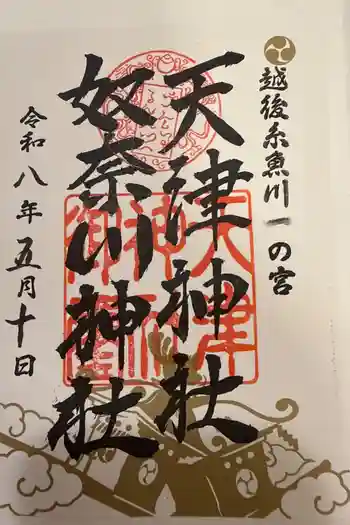 越後糸魚川一の宮
天津神社
奴奈川神社
令和八年五月十日